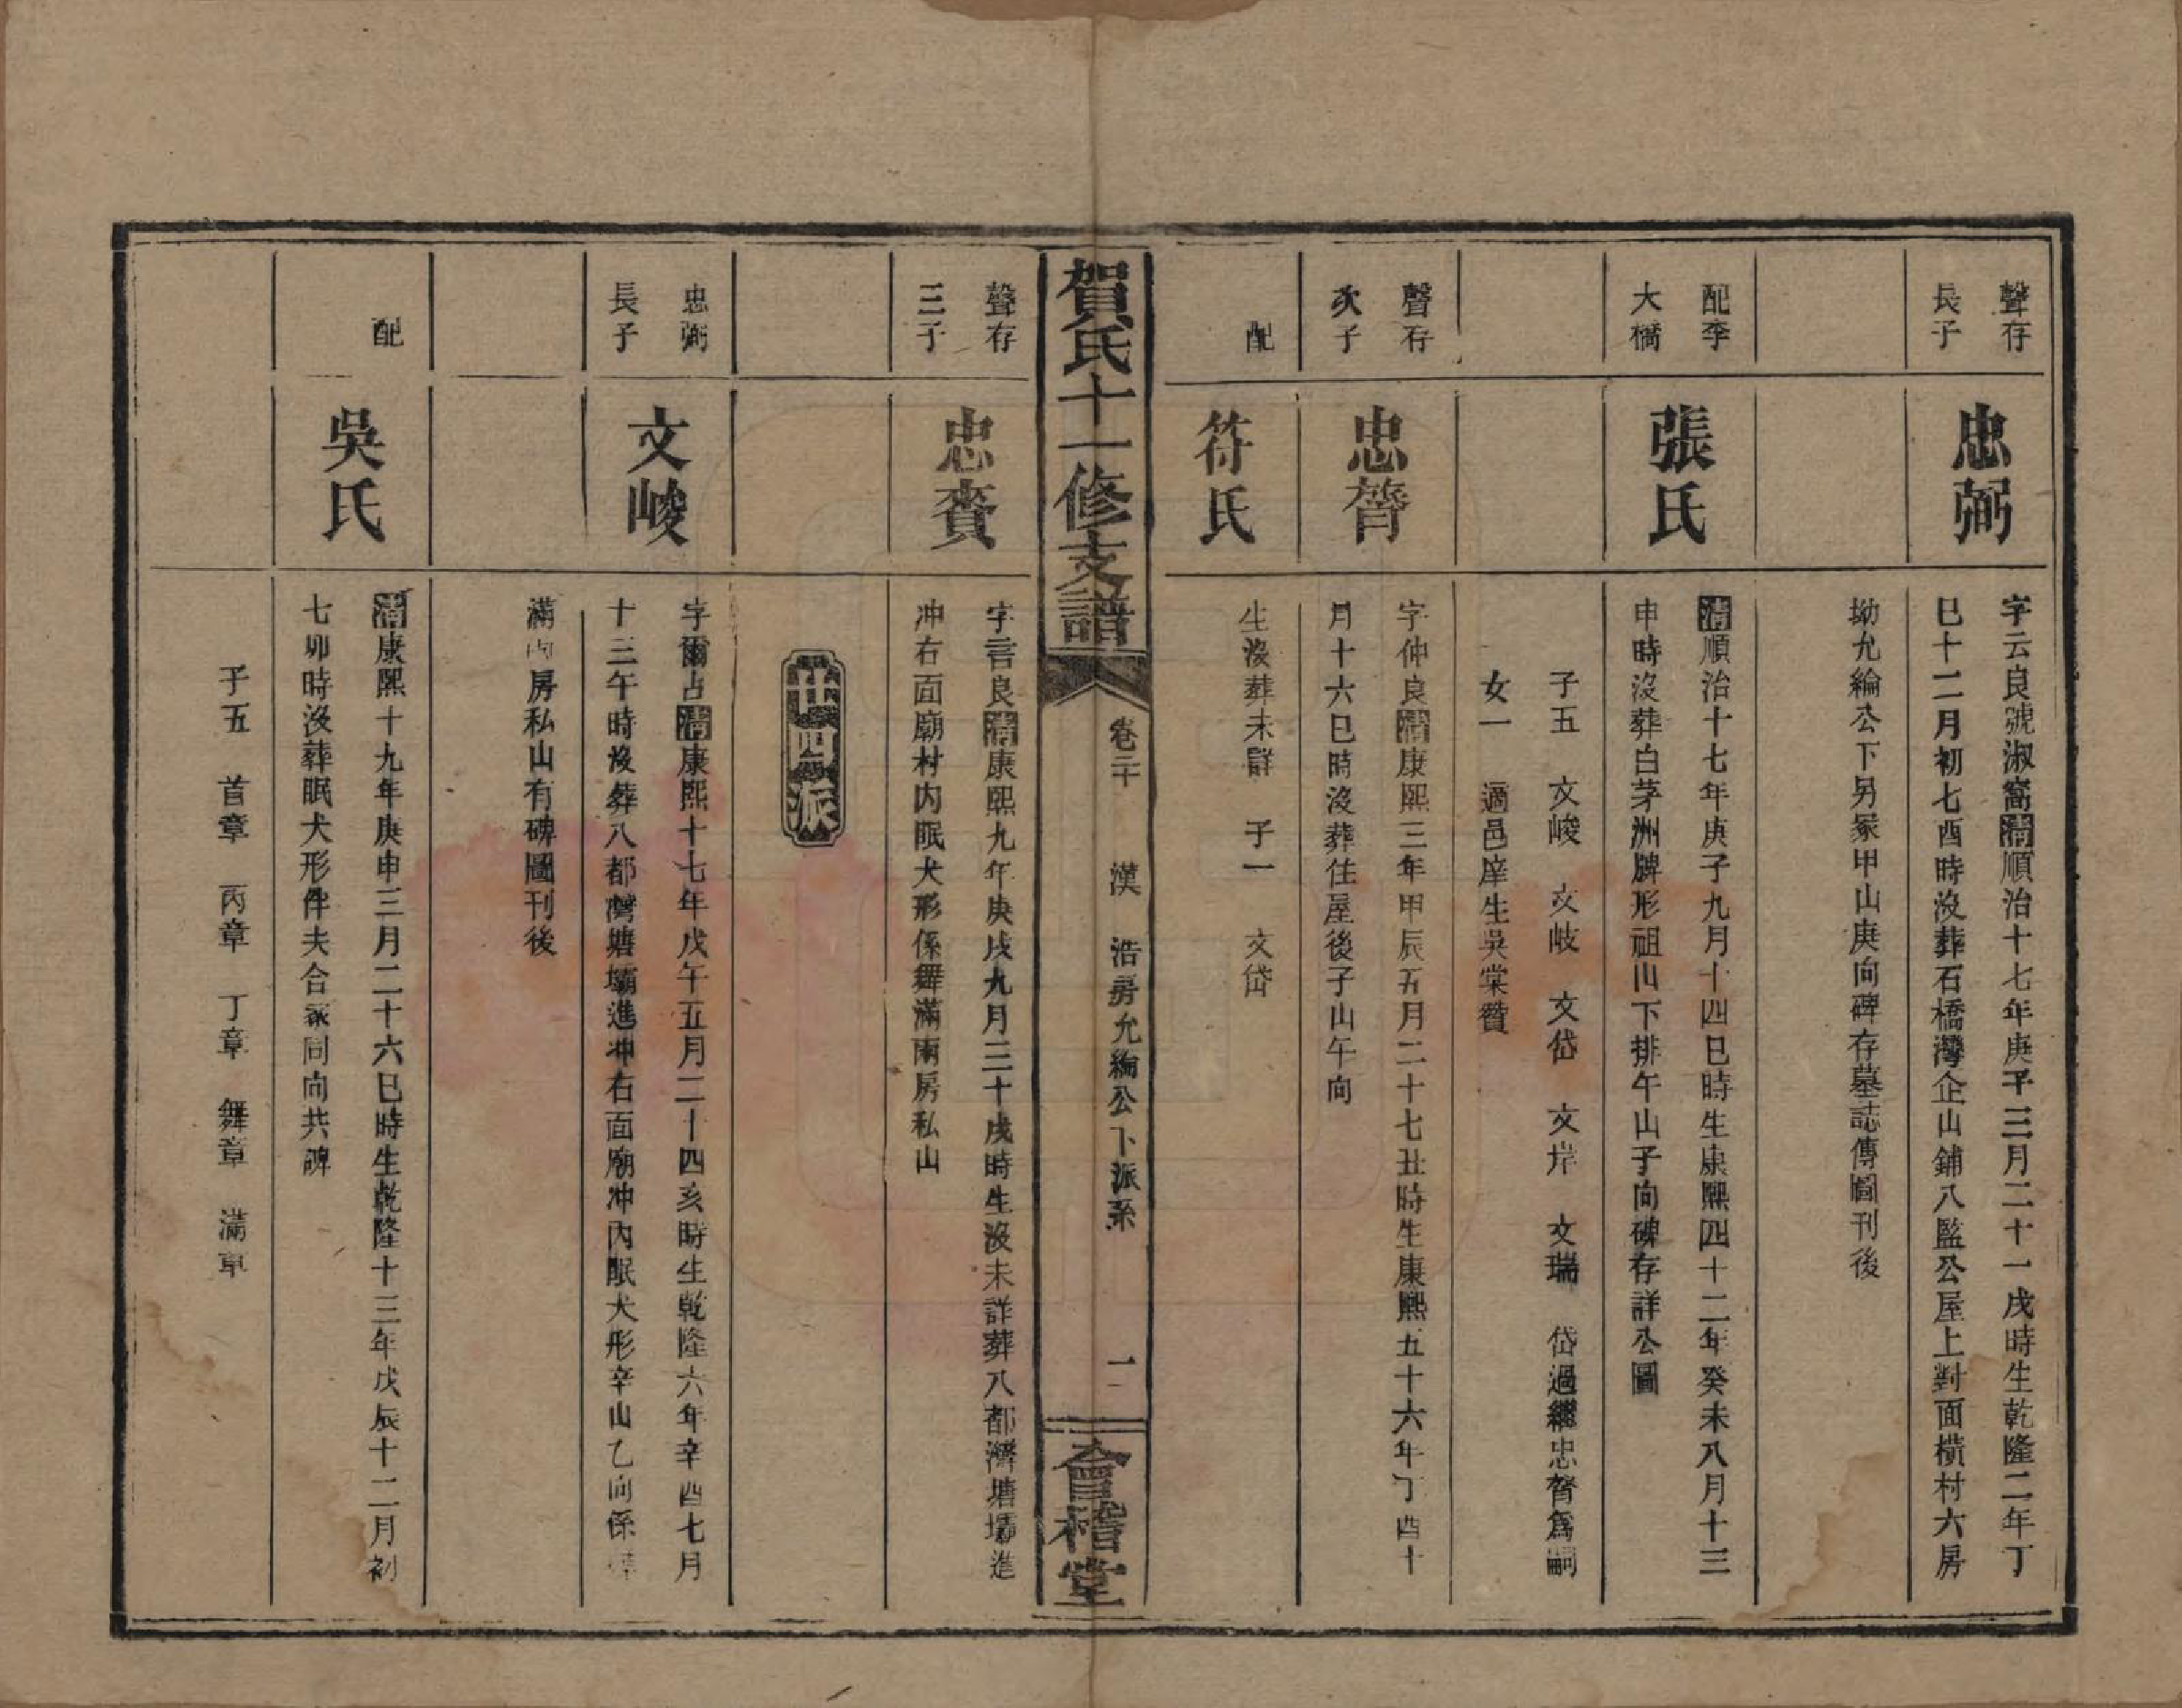 聲存
長子
忠弼
字云良號淑窩清順治十七年庚子三月二十一戌時生乾隆二年丁
巳十二月初七酉時沒葬石橋灣企山鋪八監公屋上對面橫村六房
坳允綸公下另冢甲山庚向碑存墓誌傳圖刊後
配李
大橋
張氏
清順治十七年庚子九月十四巳時生康熙四十二年癸未八月十三
申時沒葬白茅洲牌形祖山下排午山子向碑存詳公圖
子五 文峻 文岐 文岱 文岸 文瑞 岱過繼忠膂爲嗣
女一 適邑庠生吳棠贊
聲存
次子
忠膂
字仲良清康熙三年甲辰五月二十七丑時生康熙五十六年丁酉十
月十六巳時沒葬住屋後子山午向
配
符氏
生沒葬未詳 子一 文岱
賀氏十一修支譜
卷三十 漢 浩房允綸公下派系 一
會稽堂
聲存
三子
忠賚
字言良清康熙九年庚戌九月三十戌時生沒未詳葬八都灣塘壩進
冲右面廟村內眠犬形係舞滿兩房私山
廿四派
忠弼
長子
文峻
字爾占清康熙十七年戊午五月二十四亥時生乾隆六年辛酉七月
十三午時沒葬八都灣塘壩進冲右面廟冲內眠犬形辛山乙向係
滿丙房私山有碑圖刊後
配
吳氏
清康熙十九年庚申三月二十六巳時生乾隆十三年戊辰十二月初
七卯時沒葬眠犬形伴夫合冢同向共碑
子五 首章 丙章 丁章 舞章 滿章